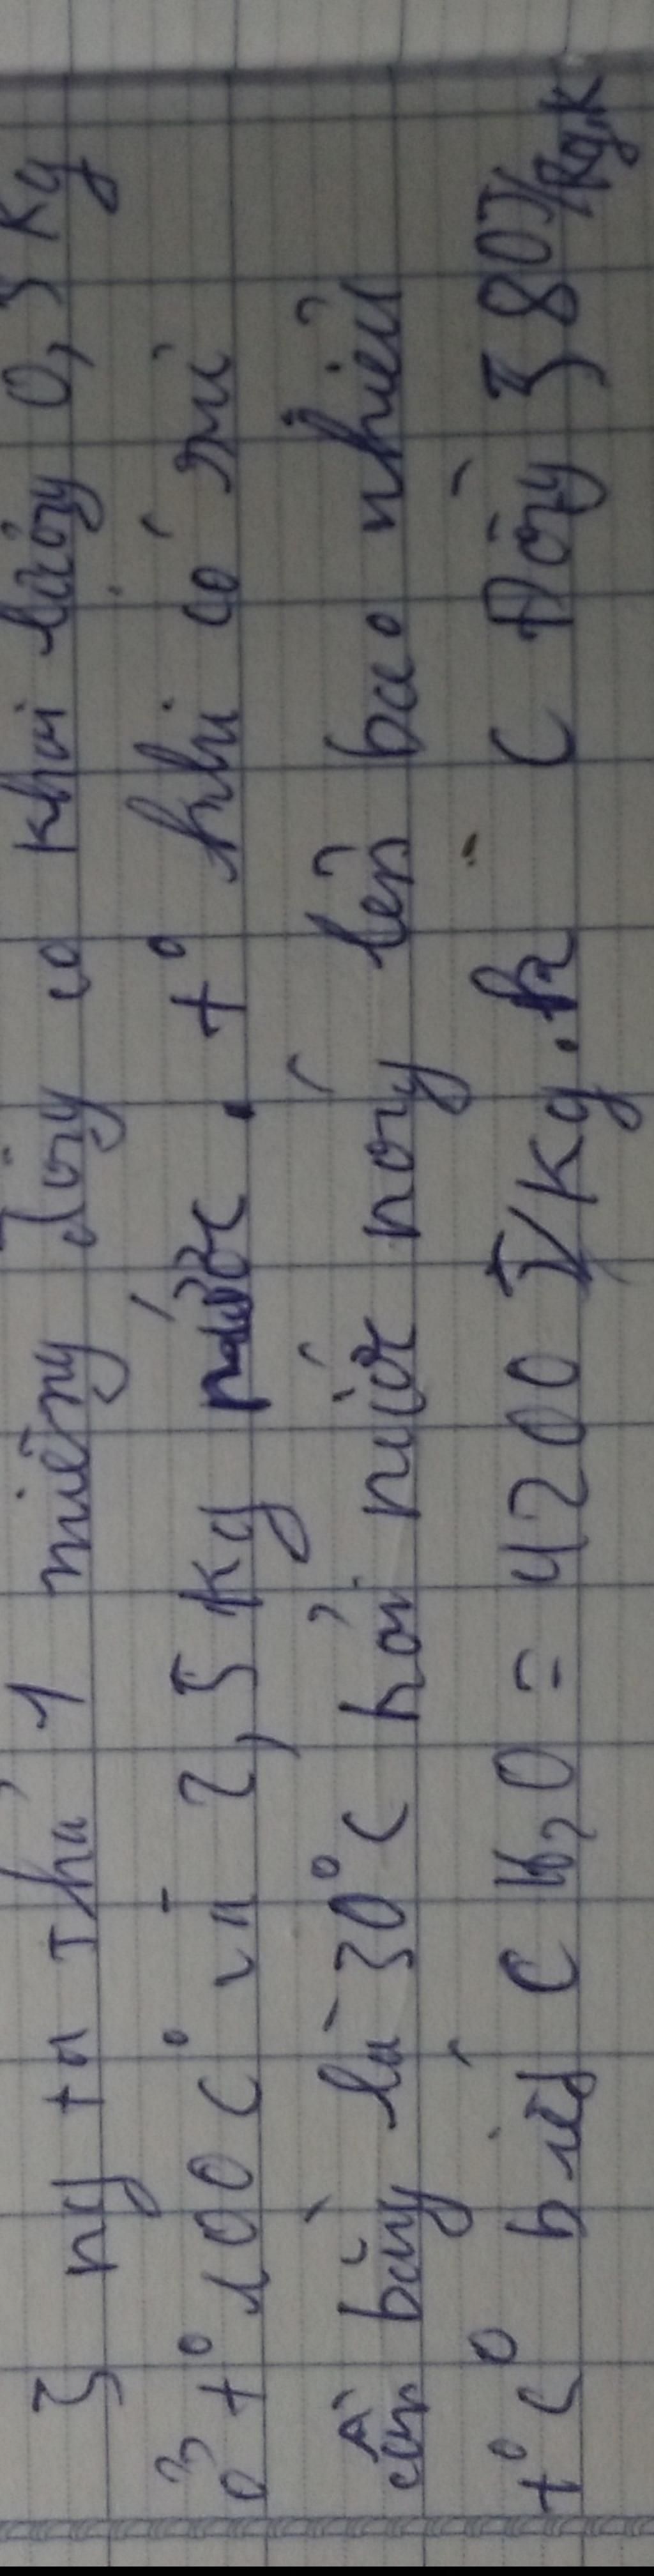 5 ng ta thả 1 miếng đồng có khối lượng 0,5 Kg
ở t° 100 C° và 2,5 Kg nước. t° khi có sự
cân bằng là 30°C hỏi nước nóng lên bao nhiêu
t° C° biết C H2O = 4200 J/Kg.k C Đồng 380J/kg.k